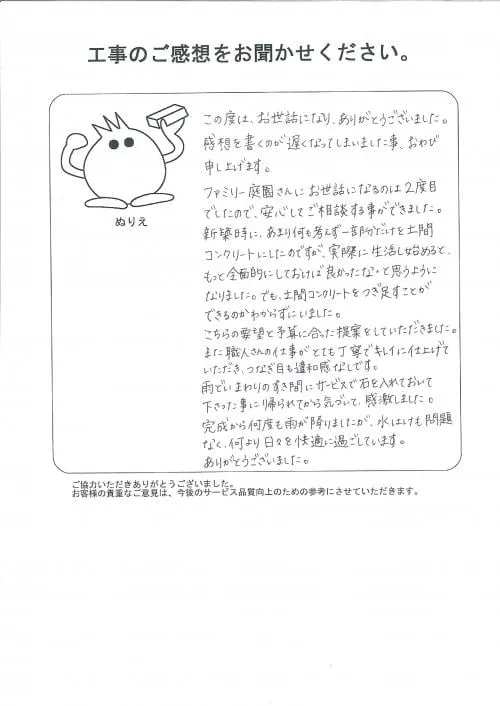 工事のご感想をお聞かせください。
ぬりえ
この度は、お世話になり、ありがとうございました。
感想を書くのが遅くなってしまいました事、おわび
申し上げます。
ファミリー庭園さんにお世話になるのは2度目
でしたので、安心してご相談する事ができました。
新築時に、あまり何も考えず一部分だけを土間
コンクリートにしたのですが、実際に生活し始めると、
もっと全面的にしておけば良かったな・と思うように
なりました。でも、土間コンクリートをつぎ足すことが
できるのかわからずにいました。
こちらの要望と予算に合った提案をしていただきました。
また職人さんの仕事がとても丁寧でキレイに仕上げて
いただき、つなぎ目も違和感なしです。
雨どいまわりのすき間にサービスで石を入れておいて
下さった事に帰られてから気づいて、感激しました。
完成から何度も雨が降りましたが、水はけも問題
なく、何より日々を快適に過ごしています。
ありがとうございました。
ご協力いただきありがとうございました。
お客様の貴重なご意見は、今後のサービス品質向上のための参考にさせていただきます。